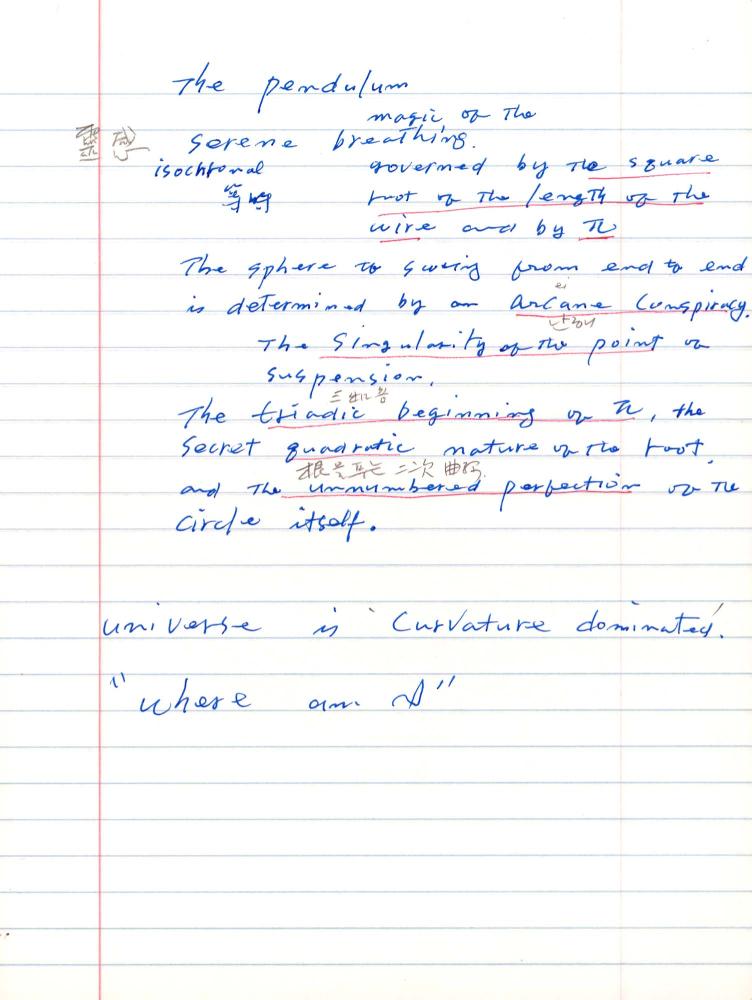 The pendulum
magic of the
靈感 serene breathing.
isochronal governed by the square
等時 root of the length of the
wire and by π
The sphere to swing from end to end
is determined by an arcane conspiracy.
The singularity of the point of
suspension,
The triadic beginning of π, the
secret quadratic nature of the root,
and the unnumbered perfection of the
circle itself.
universe is curvature dominated.
"where am I"